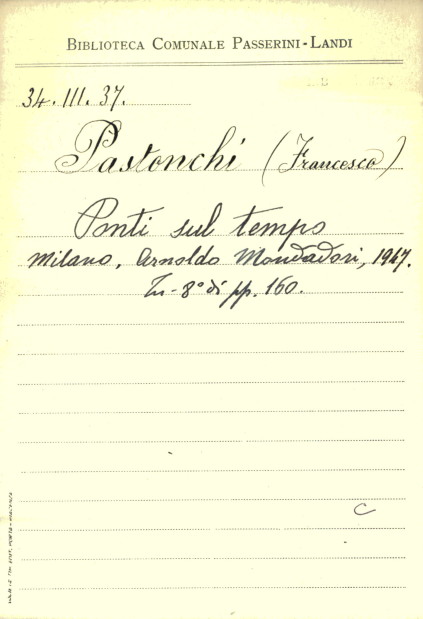 BIBLIOTECA COMUNALE PASSERINI-LANDI
34.III.37.
Pastonchi (Francesco)
Ponti sul tempo
Milano, Arnoldo Mondadori, 1947.
In-8° di pp. 160.
C